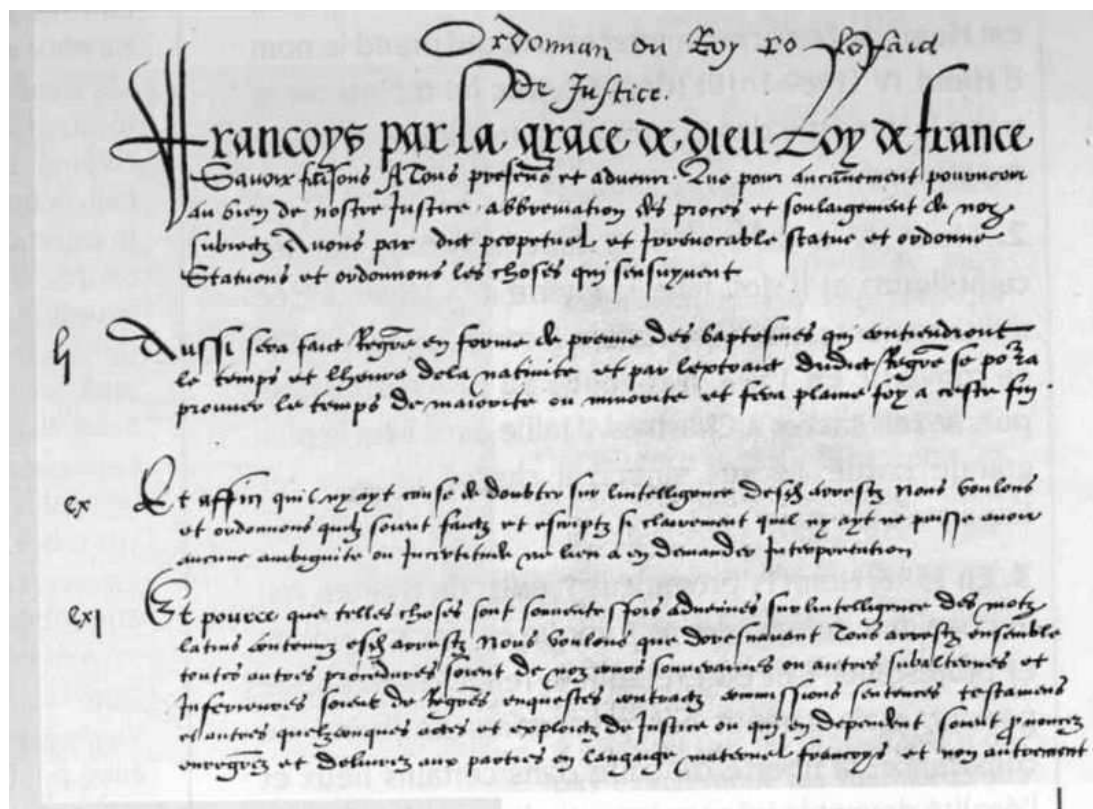 Ordonnan du Roy po le faid
De Justice.
Francoys par la grace de dieu Roy de france
Savoir faisons A Tous presens et advenir. Que pour aucunement pourveoir
au bien de nostre Justice abbreviation des proces et soulaigement de noz
subiectz Avons par edict perpetuel et Irrevocable statue et ordonne
Statuons et ordonnons les choses qui sensuyvent
lj Aussi sera faict Regrē en forme de preuve des baptesmes qui contiendront
le temps et lheure dela nativite et par lextraict dudict Regrē se porra
prouver le temps de maiorite ou minorite et fera plaine foy a ceste fin
cx Et affin quil ny ayt cause de doubter sur lintelligence desd arrestz Nous voulons
et ordonnons quilz soient faictz et escriptz si clairement quil ny ayt ne puisse avoir
aucune ambiguite ou Incertitude ne lieu a en demander Interpretation
cxj Et pource que telles choses sont souventesfois advenues sur lintelligence des motz
latins contenuz esd arrestz Nous voulons que doresnavant tous arrestz ensemble
toutes autres procedures soient de noz cours souveraines ou autres subalternes et
Inferieures soient de Regrēs enquestes contractz commissions sentences testamens
et autres quelzconques actes et exploictz de Justice ou qui en dependent soient prnoncez
enregrēz et delivrez aux parties en langaige maternel francoys et non autrement